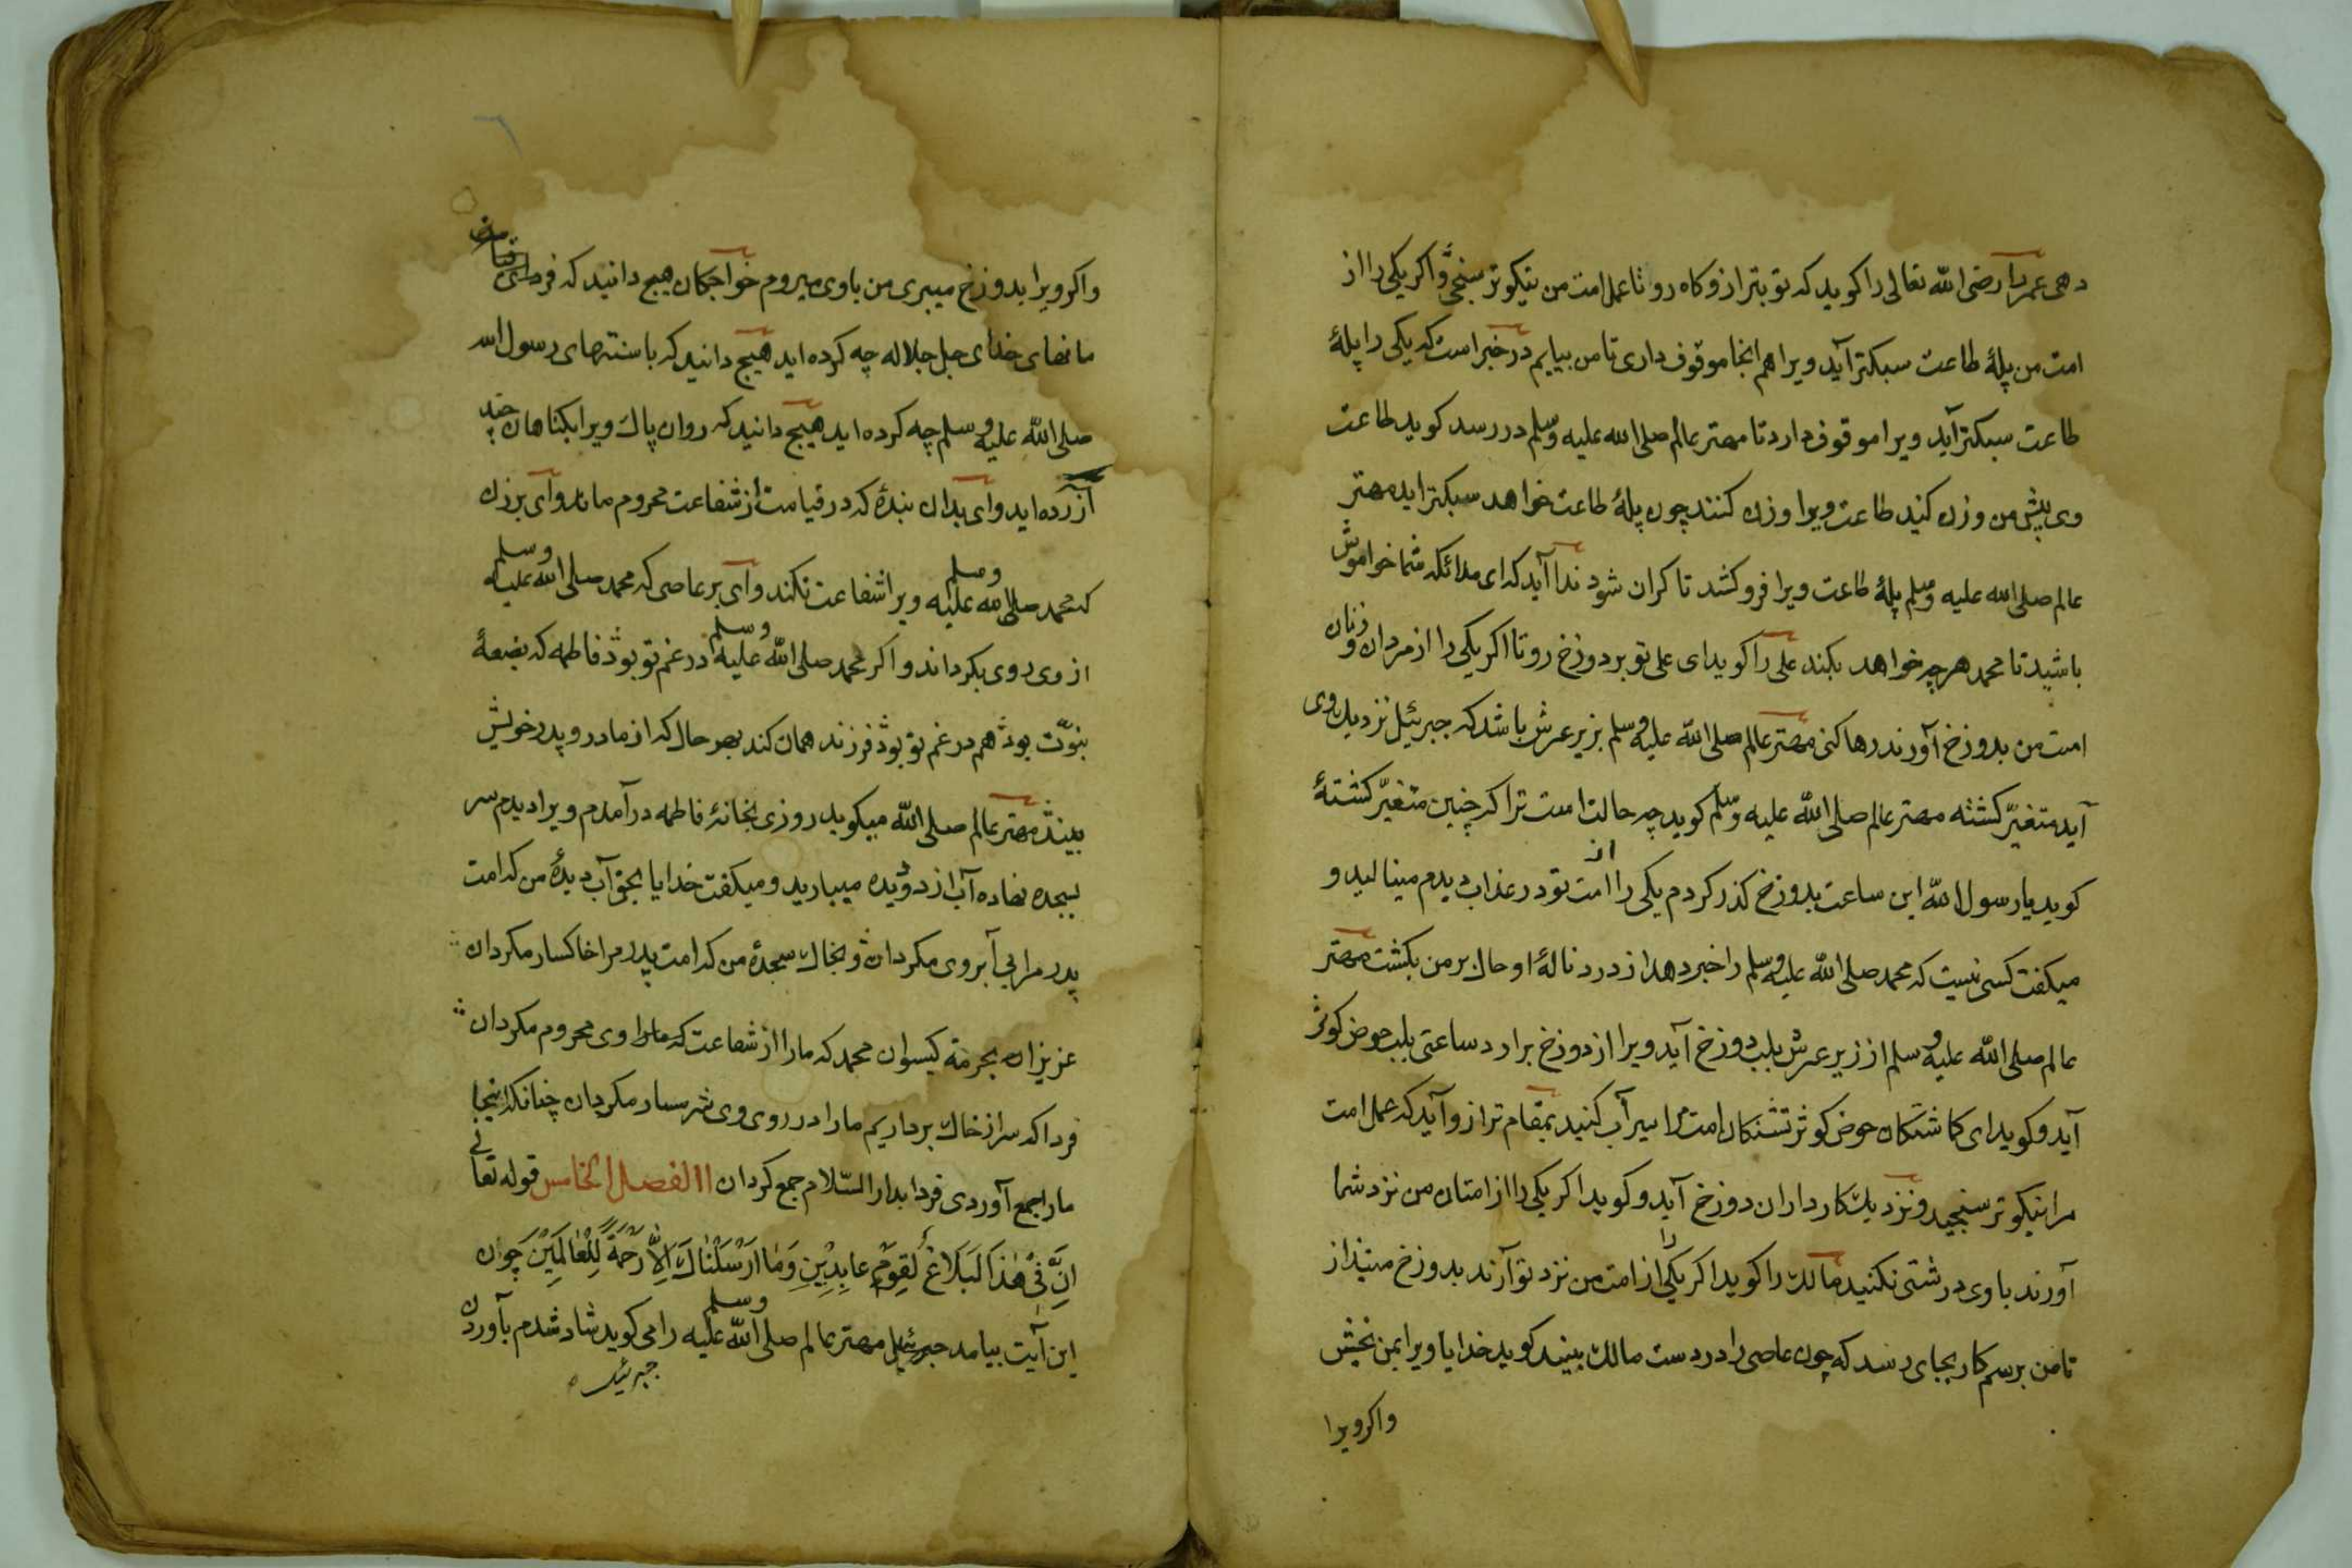 دهی عمر را رضی الله تعالی را کوید که تو بترازوکاه رو تا عمل امت من نیکوتر سنجی و اکر یکی را از
امت من پلهٔ طاعت سبکتر آید ویرا هم انجا موقوف داری تا من بیایم در خبر است که یکی را پلهٔ
طاعت سبکتر آید ویرا موقوف دارد تا مهتر عالم صلی الله علیه وسلم در رسد کوید طاعت
وی پیش من وزن کنید طاعت ویرا وزن کنند چون پلهٔ طاعت خواهد سبکتر اید مهتر
عالم صلی الله علیه وسلم پلهٔ طاعت ویرا فروکشد تا کران شود ندا آید که ای ملائکه شما خواموش
باشید تا محمد هرچه خواهد بکند علی را کوید ای علی تو بر دوزخ رو تا اکر یکی را از مردان وزنان
امت من بدوزخ آورند رها کنی مهتر عالم صلی الله علیه وسلم بزیر عرش باشد که جبرئیل نزدیک وی
آید متغیّر کشته مهتر عالم صلی الله علیه وسلم کوید چه حالت است ترا که چنین متغیّر کشتهٔ
کوید یا رسول الله این ساعت بدوزخ کذر کردم یکی را از امت تو در عذاب دیدم مینالید و
میکفت کسی نیست که محمد صلی الله علیه وسلم را خبر دهد از درد نالهٔ او حال بر من بکشت مهتر
عالم صلی الله علیه وسلم از زیر عرش بلب دوزخ آید ویرا از دوزخ برارد ساعتی بلب حوض کوثر
آید و کوید ای کماشتکان حوض کوثر تشنکان امت مرا سیرآب کنید بمقام ترازو آید که عمل امت
مرا نیکوتر سنجید ونزدیک کارداران دوزخ آید و کوید اکر یکی را از امتان من نزد شما
آورند با وی درشتی نکنید مالک را کوید اکر یکی را از امت من نزد تو آرند بدوزخ مینداز
تا من برسم کار بجای رسد که چون عاصی را در دست مالک بیند کوید خدایا ویرا بمن بخش
واکرویرا
واکر ویرا بدوزخ میبری من با وی میروم خواجکان هیچ دانید که فردای قیامت
ما نهای خدای جل جلاله چه کرده اید هیچ دانید که با سنتهای رسول الله
صلی الله علیه وسلم چه کرده اید هیچ دانید که روان پاک ویرا بکناهان چند
آزرده اید وای بدان بندهٔ که در قیامت از شفاعت محروم ماند وای بر زن
که محمد صلی الله علیه وسلم ویرا شفاعت نکند وای بر عاصی که محمد صلی الله علیه وسلم
از وی روی بکرداند و اکر محمد صلی الله علیه وسلم در غم تو بود فاطمه که بضعهٔ
بنوّت بود هم در غم تو بود فرزند همان کند بهر حال که از مادر و پدر خویش
بیند مهتر عالم صلی الله میکوید روزی بخانهٔ فاطمه درآمدم ویرا دیدم سر
بسجده نهاده آب از دو دیده میبارید و میکفت خدایا بحق آب دیدهٔ من که امت
پدر مرا بی آبروی مکردان و بخاک سجدهٔ من که امت پدر مرا خاکسار مکردان
عزیزان بحرمة کیسوان محمد که ما را از شفاعت وی محروم مکردان
فردا که سر از خاک برداریم ما را در روی وی شرمسار مکردان چنانکه اینجا
ما را جمع آوردی فردا بدار السّلام جمع کردان الفصل الخامس قوله تعالی
اِنَّ فِی هٰذَا لَبَلَاغًا لِقَومٍ عابِدِیْنِ وَمَا اَرْسَلْنَاكَ اِلَّا رَحْمَةً لِلْعَالَمِیْنَ چون
این آیت بیامد جبرئیل مهتر عالم صلی الله علیه وسلم را می کوید شاد شدم بآوردن
جبرئیل